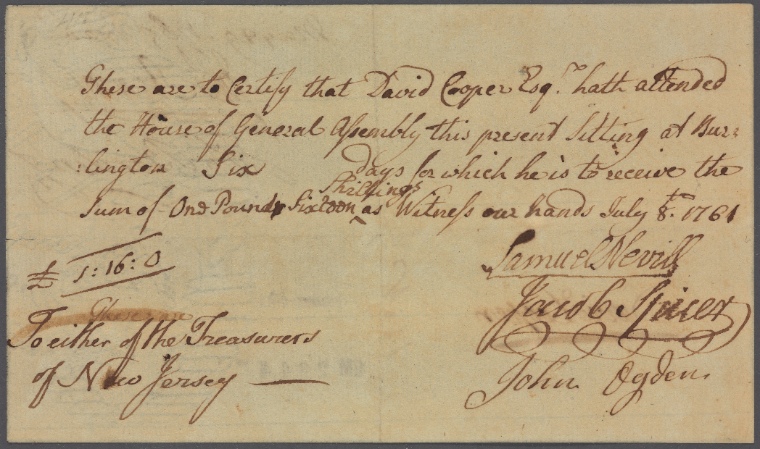 These are to Certify that David Cooper Esqr. hath attended
the House of General Assembly this present Sitting at Bur=
:lington Six days for which he is to receive the
Shillings
Sum of One Pound Sixteen ^ as Witness our hands July 8th. 1761
£ 1:16:0
Samuel Nevill
Jacob Spicer
These are
To either of the Treasurers
of New Jersey
John Ogden